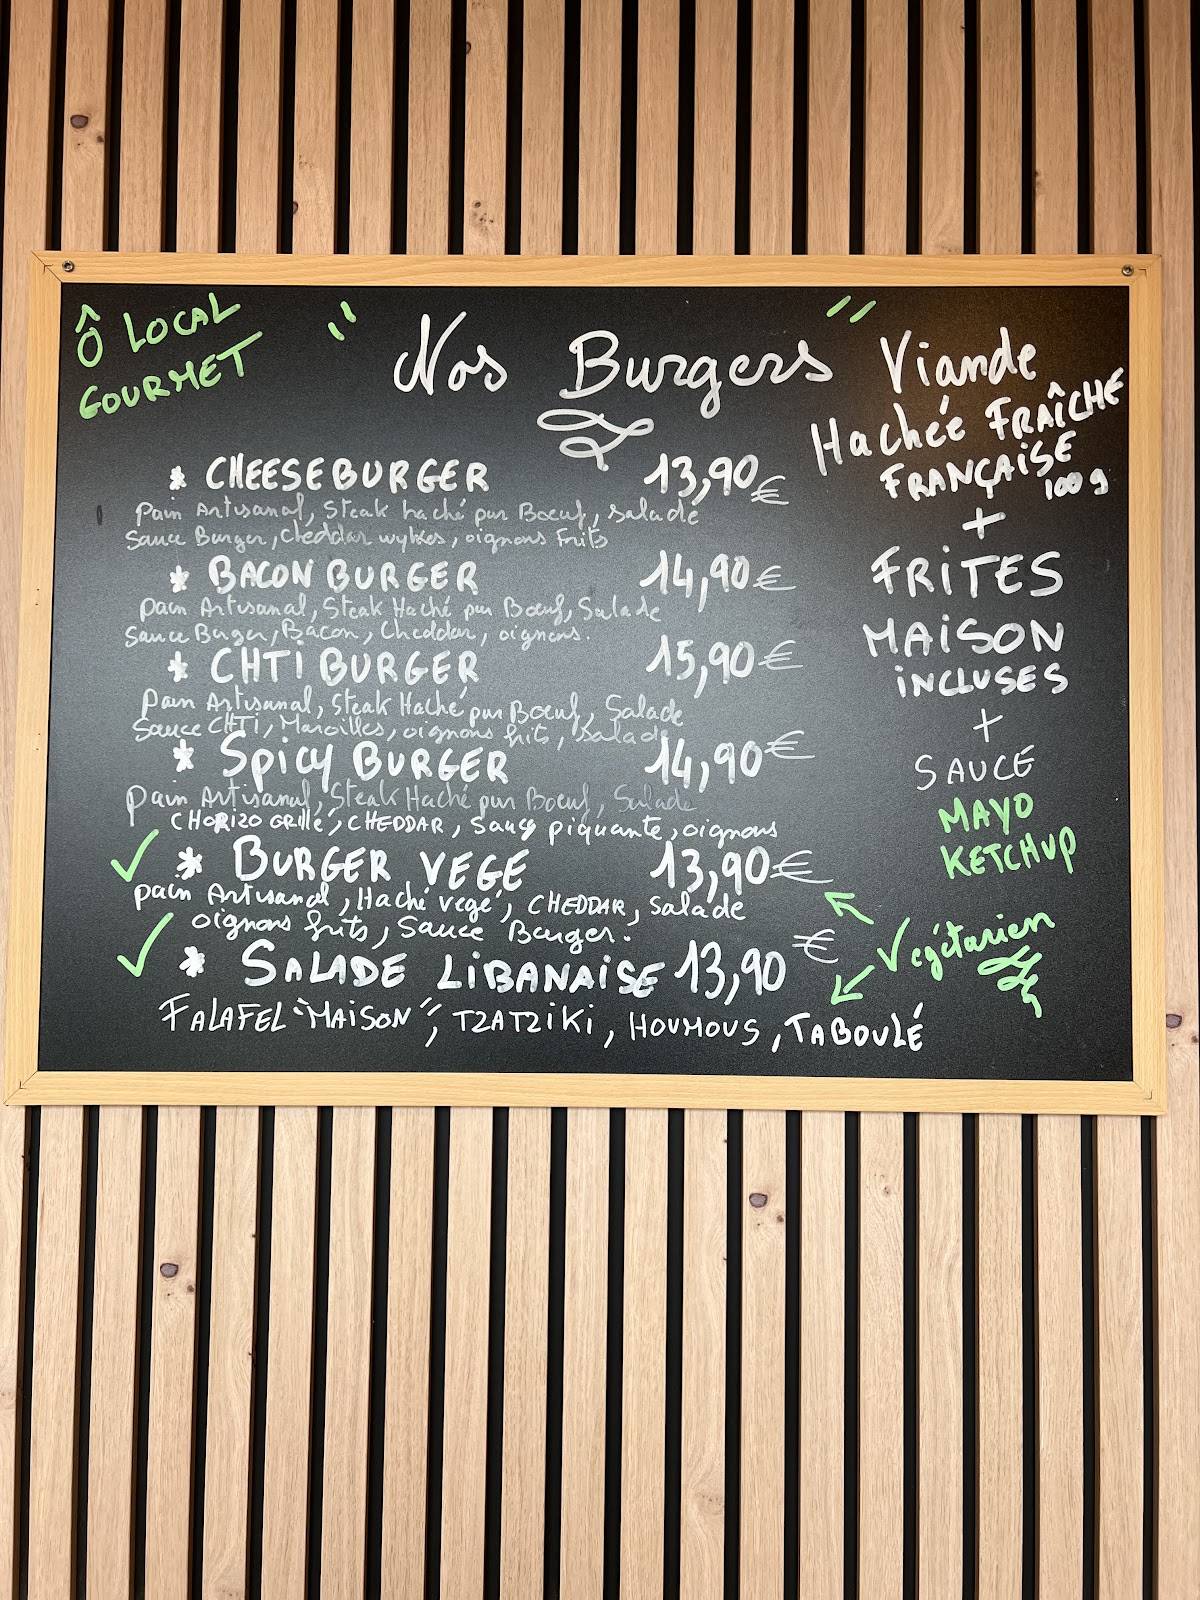 Ô LOCAL
GOURMET
" Nos Burgers "
* CHEESEBURGER 13,90 €
pain Artisanal, Steak haché pur Boeuf, salade
Sauce Burger, Cheddar, oignons Frits
* BACON BURGER 14,90 €
pain Artisanal, Steak Haché pur Boeuf, Salade
Sauce Burger, Bacon, Cheddar, oignons.
* CHTI BURGER 15,90 €
pain Artisanal, Steak Haché pur Boeuf, Salade
Sauce CHTi, Maroilles, oignons frits, salade
* Spicy BURGER 14,90 €
pain Artisanal, Steak Haché pur Boeuf, Salade
CHORIZO GRILLé, CHEDDAR, Sauce piquante, oignons
* BURGER VEGÉ 13,90 €
pain Artisanal, Haché vegé, CHEDDAR, Salade
oignons frits, Sauce Burger.
* SALADE LIBANAISE 13,90 €
FALAFEL "MAISON", TZATZIKI, HOUMOUS, TABOULÉ
Viande
Hachée FRAÎCHE
FRANÇAISE
100 g
+
FRITES
MAISON
INCLUSES
+
SAUCE
MAYO
KETCHUP
Végétarien